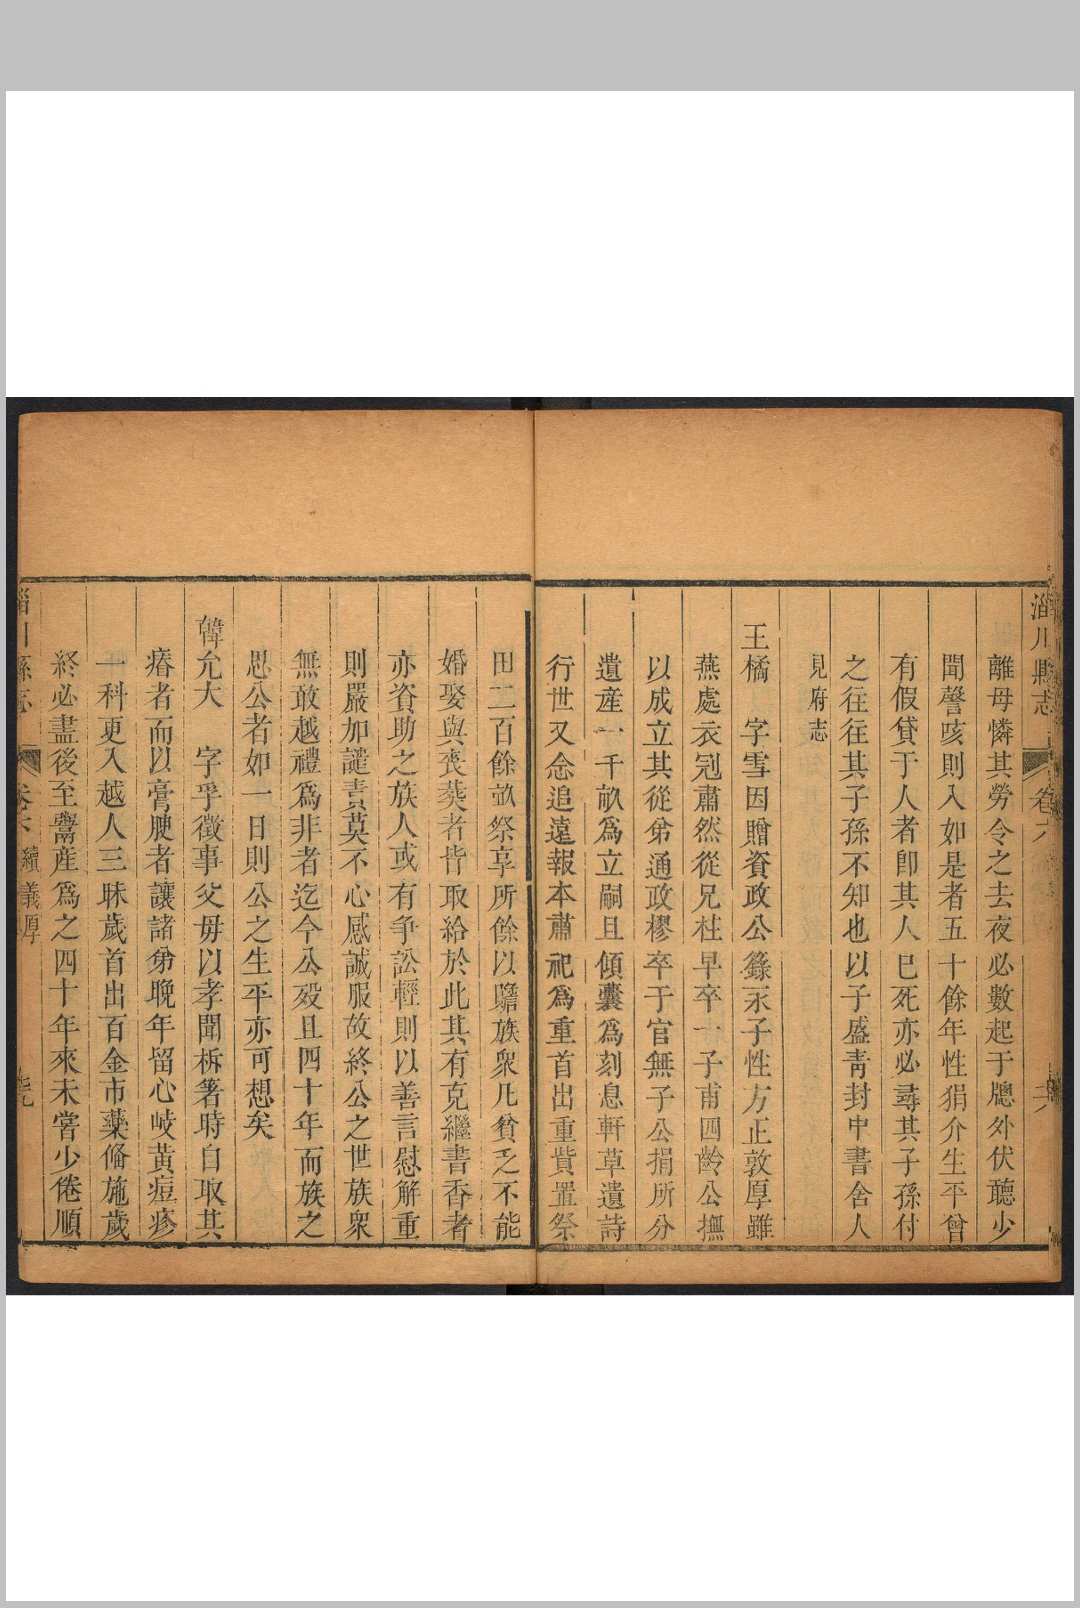 淄川縣志 卷六
離母憐其勞令之去夜必數起于牕外伏聽少
聞謦咳則入如是者五十餘年性狷介生平曾
有假貸于人者卽其人已死亦必尋其子孫付
之往往其子孫不知也以子盛靑封中書舍人
見府志
王橘 字雪因贈資政公籙永子性方正敦厚雖
燕處衣冠肅然從兄柱早卒一子甫四齡公撫
以成立其從弟通政樛卒于官無子公捐所分
遺産一千畝爲立嗣且傾囊爲刻息軒草遺詩
行世又念追遠報本肅祀爲重首出重貲置祭
田二百餘畝祭享所餘以贍族衆凡貧乏不能
婚娶與喪葬者皆取給於此其有克繼書香者
亦資助之族人或有争訟輕則以善言慰解重
則嚴加譴責莫不心感誠服故終公之世族衆
無敢越禮爲非者迄今公歿且四十年而族之
思公者如一日則公之生平亦可想矣
韓允大 字孚徵事父毋以孝聞柝箸時自取其
瘠者而以膏腴者讓諸弟晚年留心岐黃痘疹
一科更入越人三昧歲首出百金市藥俻施歲
終必盡後至鬻産爲之四十年來未嘗少倦順
淄川縣志 卷六 續義厚